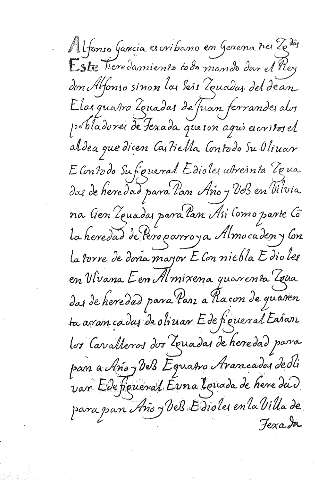 Alfonso Garcia escribano en Gerena tres Zgdas
Este Heredamiento todo mando dar el Rey
don Alfonso sinon las seis Zguadas del dean
E las quatro Zguadas de Juan ferrandes a los
pobladores de Texada que son aqui escritos el
aldea que dicen Castiella Con todo Su Olivar
E Con todo Su figueral E dioles treinta Zgua
das de heredad para Pan Año y Vez en
Cien Zguadas para Pan Asi Como parte Cō
la heredad de Pero parroya Almocaden y Con
la torre de doña mayor E Con niebla E dioles
en E en Almixena quarenta Zgua
das de heredad para Pan a Racon de quaren
ta arançadas de olivar E de figueral
los Cavalleros dos Zguadas de heredad para
pan a Año y Vez E quatro Arancadas de oli
var E de figueral E una Zguada de heredad
para pan Año y Vez E dioles en la Villa de
Texada